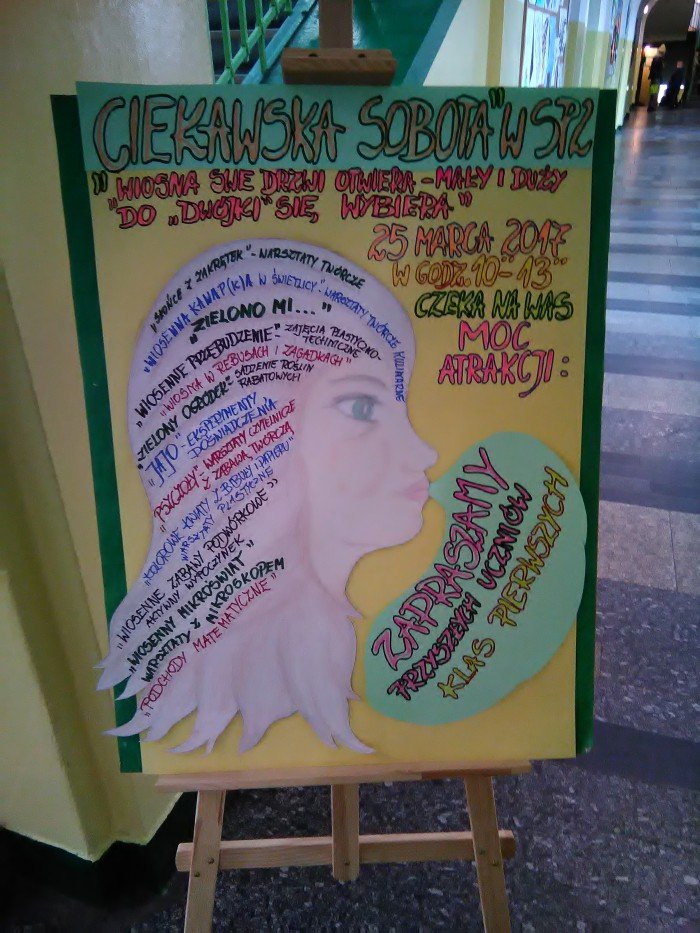 CIEKAWSKA SOBOTA" W SP2
"WIOSNA SWE DRZWI OTWIERA - MAŁY I DUŻY
"DO „DWÓJKI" SIĘ WYBIERA"
25 MARCA 2017
W GODZ. 10 - 13
CZEKA NA WAS
MOC
ATRAKCJI:
"SŁOŃCE Z ZAKRĘTEK" - WARSZTATY TWÓRCZE
"WIOSENNA KANAP(K)A W ŚWIETLICY" - WARSZTATY TWÓRCZE KULINARNE
"ZIELONO MI..."
"WIOSENNE PRZEBUDZENIE" - ZAJĘCIA PLASTYCZNO-
TECHNICZNE
"WIOSNA W REBUSACH I ZAGADKACH"
"ZIELONY OGRÓDEK" - SADZENIE ROŚLIN
RABATOWYCH
"JAJO" - EKSPERYMENTY
DOŚWIADCZENIA
"PSZCZOŁY" - WARSZTATY CZYTELNICZE
Z ZABAWĄ TWÓRCZĄ
"KOLOROWE KWIATY Z BIBUŁY I PAPIERU"
WARSZTATY PLASTYCZNE
"WIOSENNE ZABAWY PODWÓRKOWE"
AKTYWNY WYPOCZYNEK
"WIOSENNY MIKROŚWIAT"
WARSZTATY Z MIKROSKOPEM
"PODCHODY MATEMATYCZNE"
ZAPRASZAMY
PRZYSZŁYCH UCZNIÓW
KLAS PIERWSZYCH